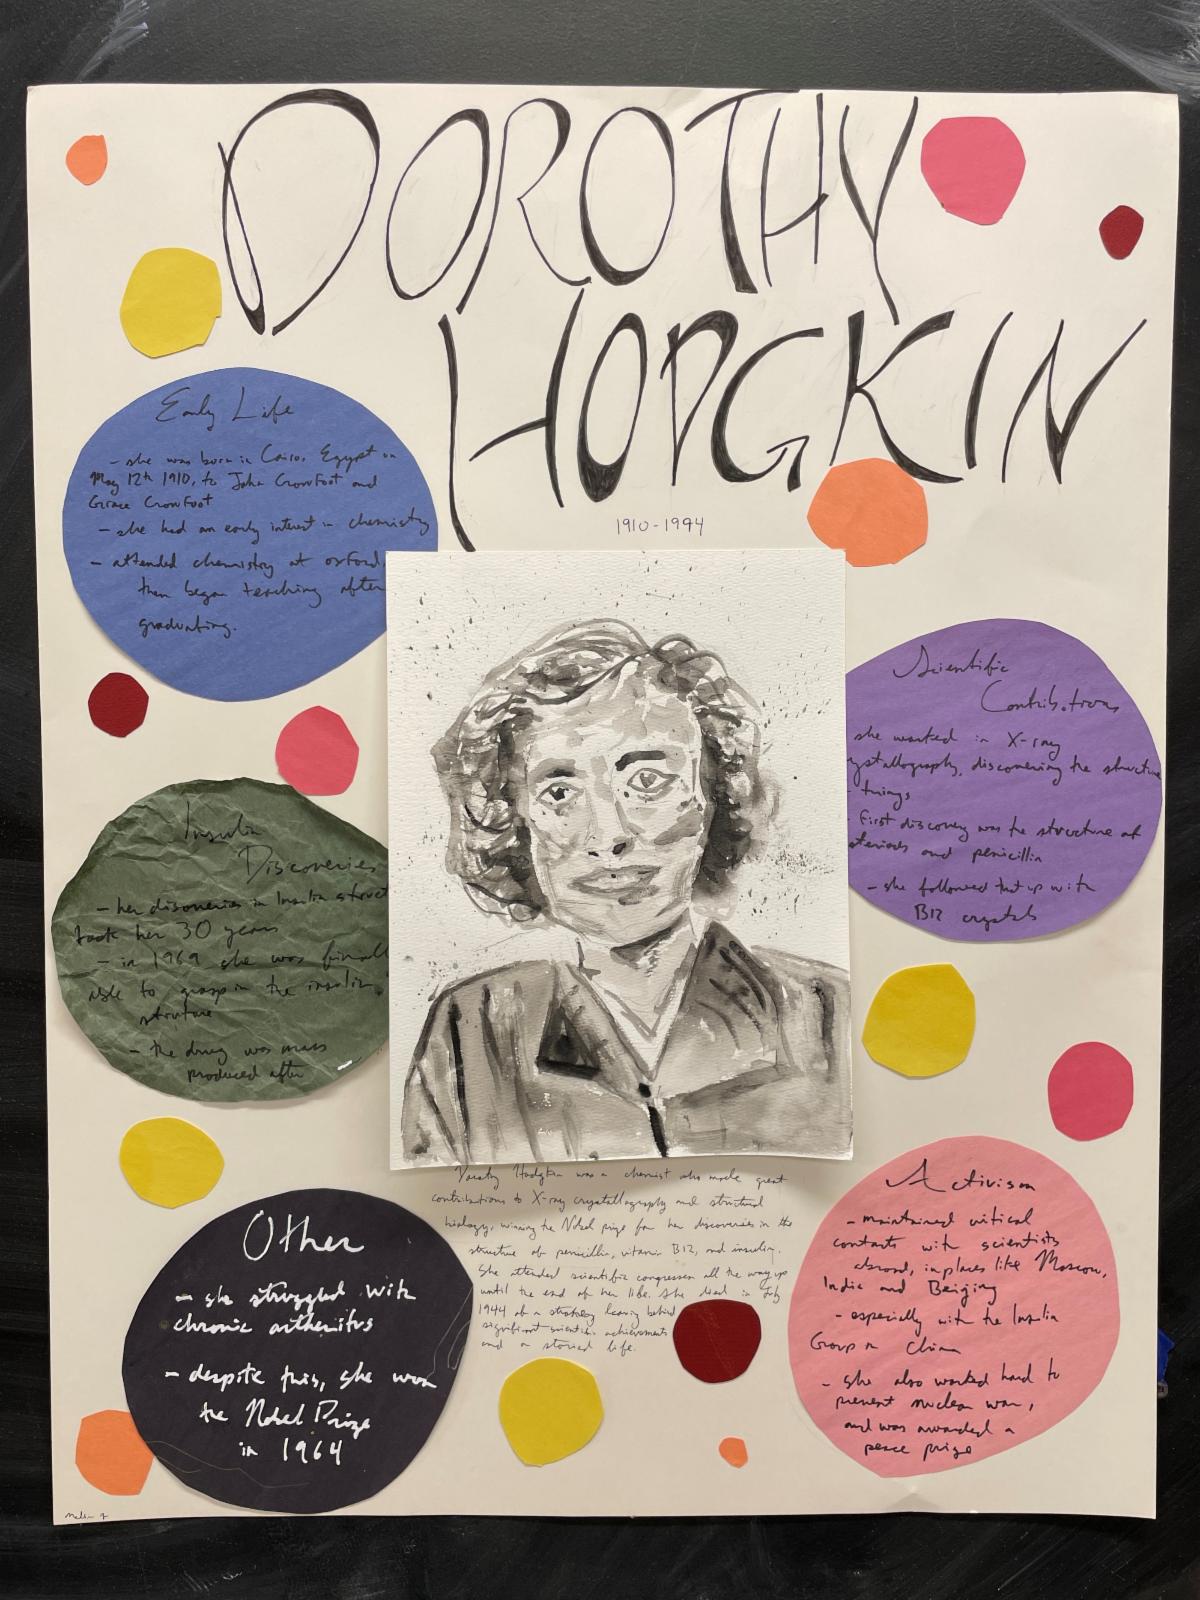 DOROTHY
HODGKIN
1910-1994
Early Life
- she was born in Cairo, Egypt on
May 12th 1910, to John Crowfoot and
Grace Crowfoot
- she had an early interest in chemistry
- attended chemistry at oxford,
then began teaching after
graduating.
Scientific
Contributions
she worked in X-ray
ystallography, discovering the structure
things
First discovery was the structure of
steriods and penicillin
- she followed that up with
B12 crystals
Insulin
Discoveries
- her disoveries in Insulin struct
took her 30 years
- in 1969 she was finall
able to grasp in the insulin
struture
- the drug was mass
produced after
Other
- she struggled with
chronic
- despite this, she won
the Nobel Prize
in 1964
Dorothy Hodgkin was a chemist who made great
contributions to X-ray crystallography and structural
biology, winning the Nobel prize for her discoveries in the
structure of penicillin, vitamin B12, and insulin.
She attended scientific congresses all the way up
until the end of her life. She died in July
of a leaving behind
significant scientific achievements
and a storied life.
Activism
- maintained critical
contacts with scientists
abroad, in places like Moscow,
India and Beijing
- especially with the Insulin
Group in China
- she also worked hard to
prevent nuclear war,
and was awarded a
peace prize